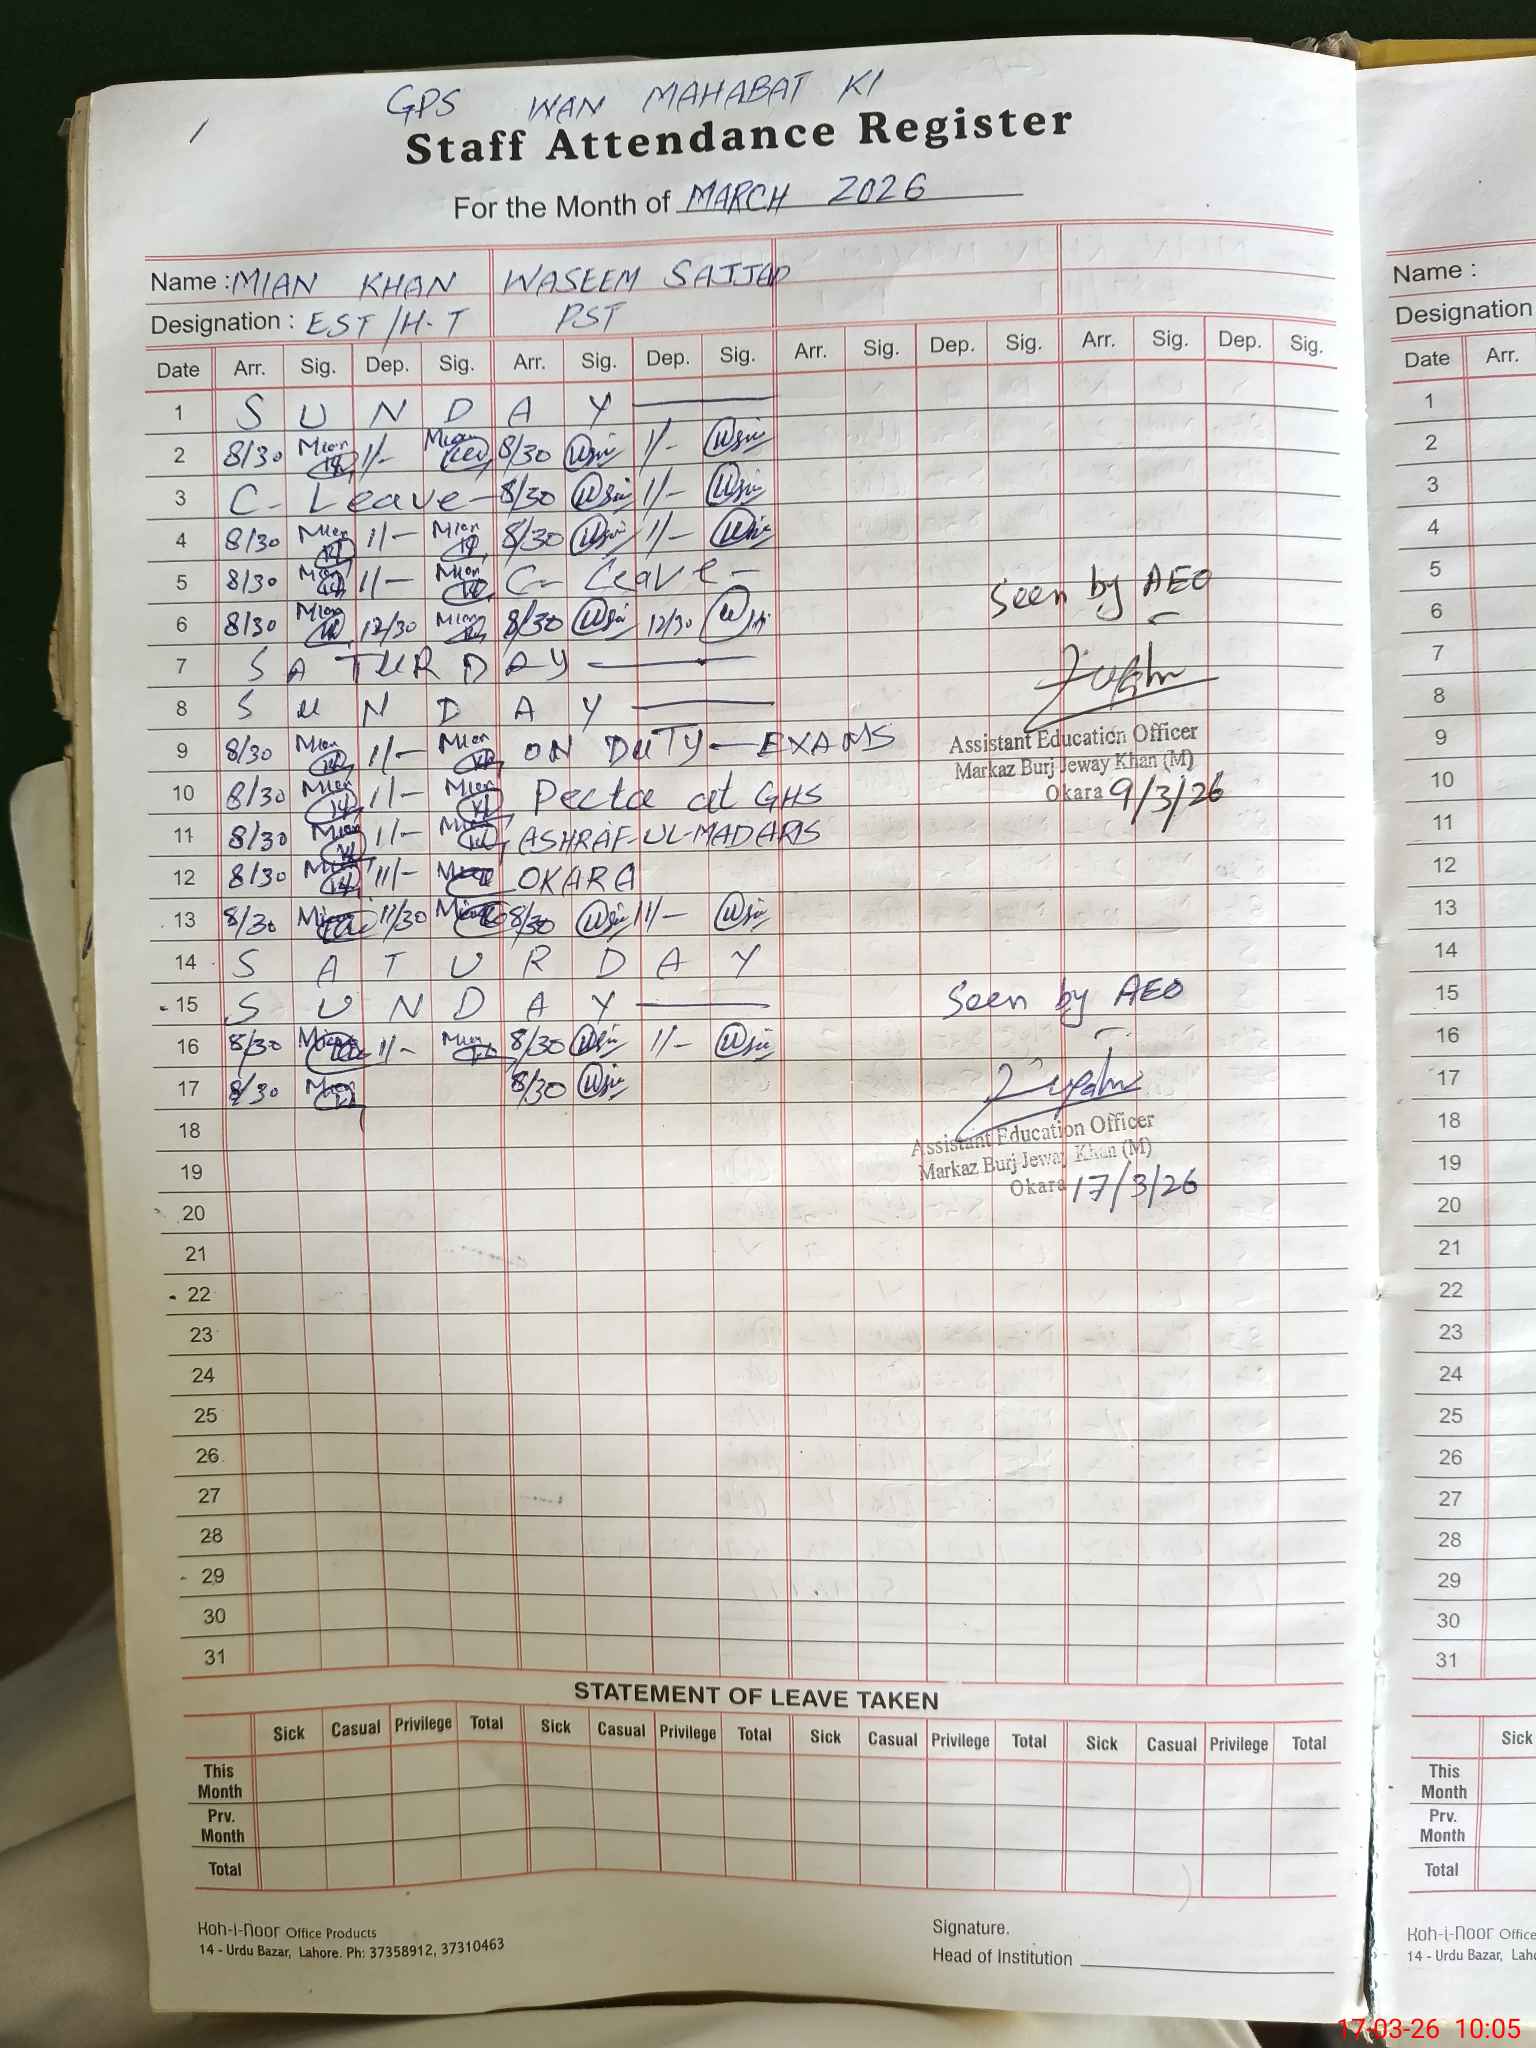 GPS WAN MAHABAT KI
1
Staff Attendance Register
For the Month of MARCH 2026
Name : MIAN KHAN WASEEM SAJJAD
Designation : EST/H.T PST
Date Arr. Sig. Dep. Sig. Arr. Sig. Dep. Sig. Arr. Sig. Dep. Sig. Arr. Sig. Dep. Sig.
1 S U N D A Y
2 8/30 Mian 1/- Mian 8/30 1/-
3 C- Leave - 8/30 1/-
4 8/30 Mian 1/- Mian 8/30 1/-
5 8/30 Mian 1/- Mian C- Leave -
6 8/30 Mian 12/30 Mian 8/30 12/30
7 S A T U R D A Y
8 S U N D A Y
9 8/30 Mian 1/- Mian ON DUTY - EXAMS
10 8/30 Mian 1/- Mian Pecta at GHS
11 8/30 Mian 1/- Mian ASHRAF-UL-MADARIS
12 8/30 Mian 11/- OKARA
13 8/30 Mian 11/30 Mian 8/30 11/-
14 S A T U R D A Y
15 S U N D A Y
16 8/30 Mian 1/- Mian 8/30 1/-
17 8/30 Mian 8/30
18
19
20
21
22
23
24
25
26
27
28
29
30
31
Seen by AEO
Assistant Education Officer
Markaz Burj Jeway Khan (M)
Okara 9/3/26
Seen by AEO
Assistant Education Officer
Markaz Burj Jeway Khan (M)
Okara 17/3/26
STATEMENT OF LEAVE TAKEN
Sick Casual Privilege Total Sick Casual Privilege Total Sick Casual Privilege Total Sick Casual Privilege Total
This Month
Prv. Month
Total
Koh-i-Noor Office Products
14 - Urdu Bazar, Lahore. Ph: 37358912, 37310463
Signature.
Head of Institution
Name :
Designation
Date Arr.
1
2
3
4
5
6
7
8
9
10
11
12
13
14
15
16
17
18
19
20
21
22
23
24
25
26
27
28
29
30
31
Sick
This Month
Prv. Month
Total
Koh-i-Noor Office
14 - Urdu Bazar,
17-03-26 10:05